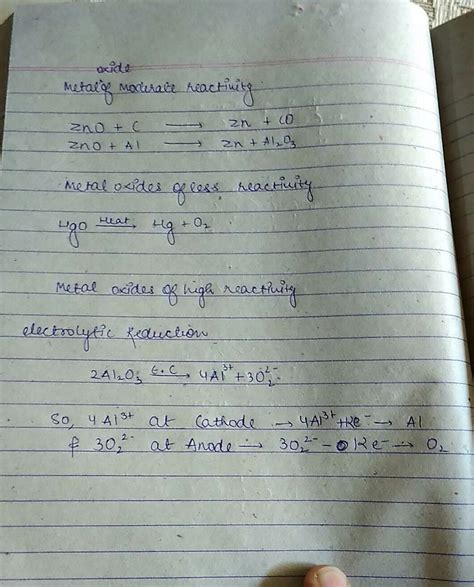 oxide
Metal of moderate reactivity
ZnO + C → Zn + CO
ZnO + Al → Zn + Al₂O₃
Metal oxides of less reactivity
HgO Heat→ Hg + O₂
Metal oxides of high reactivity
electrolytic Reduction
2Al₂O₃ E.C→ 4Al³⁺ + 3O₂²⁻
So, 4Al³⁺ at Cathode → 4Al³⁺ + 12e⁻ → Al
& 3O₂²⁻ at Anode → 3O₂²⁻ - 12e⁻ → O₂